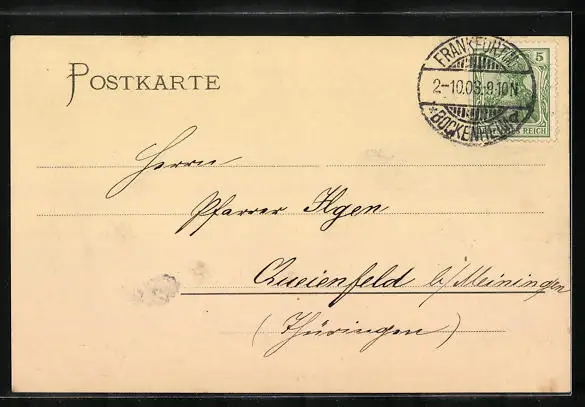 POSTKARTE
FRANKFURT
2-10.03.9-10N
*BOCKENHEIM
5
REICH
Herrn
Pfarrer Ilgen
Queienfeld b/Meiningen
(Thüringen)